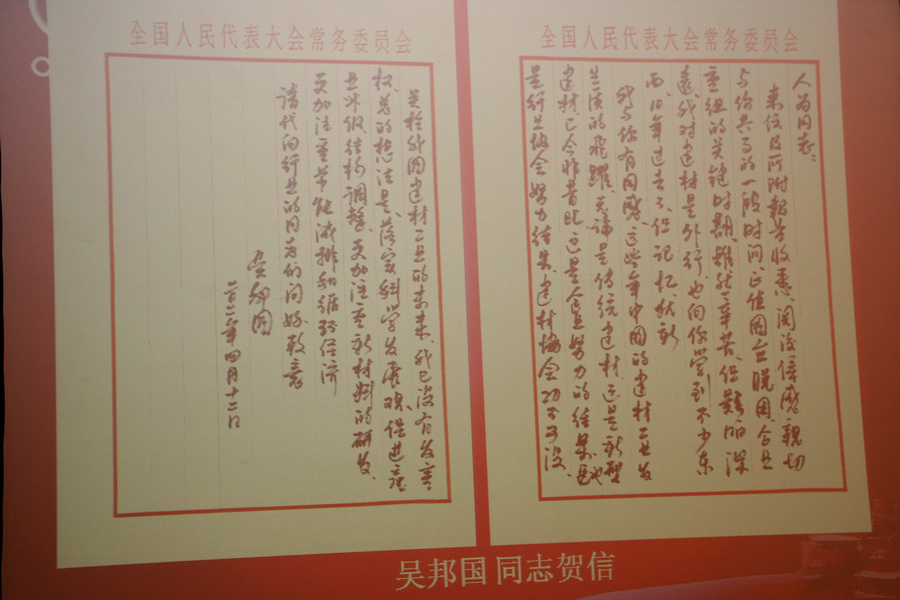 全国人民代表大会常务委员会
人为同志:
来信及所附报告收悉,阅后倍感亲切
与你共事的一段时间,正值国企脱困、企业
重组的关键时期,虽然辛苦,但影响深
远。我对建材是外行,也向你学到不少东
西,10年过去了,但记忆犹新
我与你有同感,这些年中国的建材工业发
生质的飞跃,无论是传统建材,还是新型
建材,已今非昔比,这是企业努力的结果,也
是行业协会努力结果,建材协会功不可没。
全国人民代表大会常务委员会
关于我国建材工业的未来,我已没有发言
权,总的想法是,落实科学发展观,促进产
业升级,结构调整,更加注重新材料的研发,
更加注重节能减排和循环经济
请代向行业的同志们问好,致意
吴邦国
年四月十二日
吴邦国 同志贺信